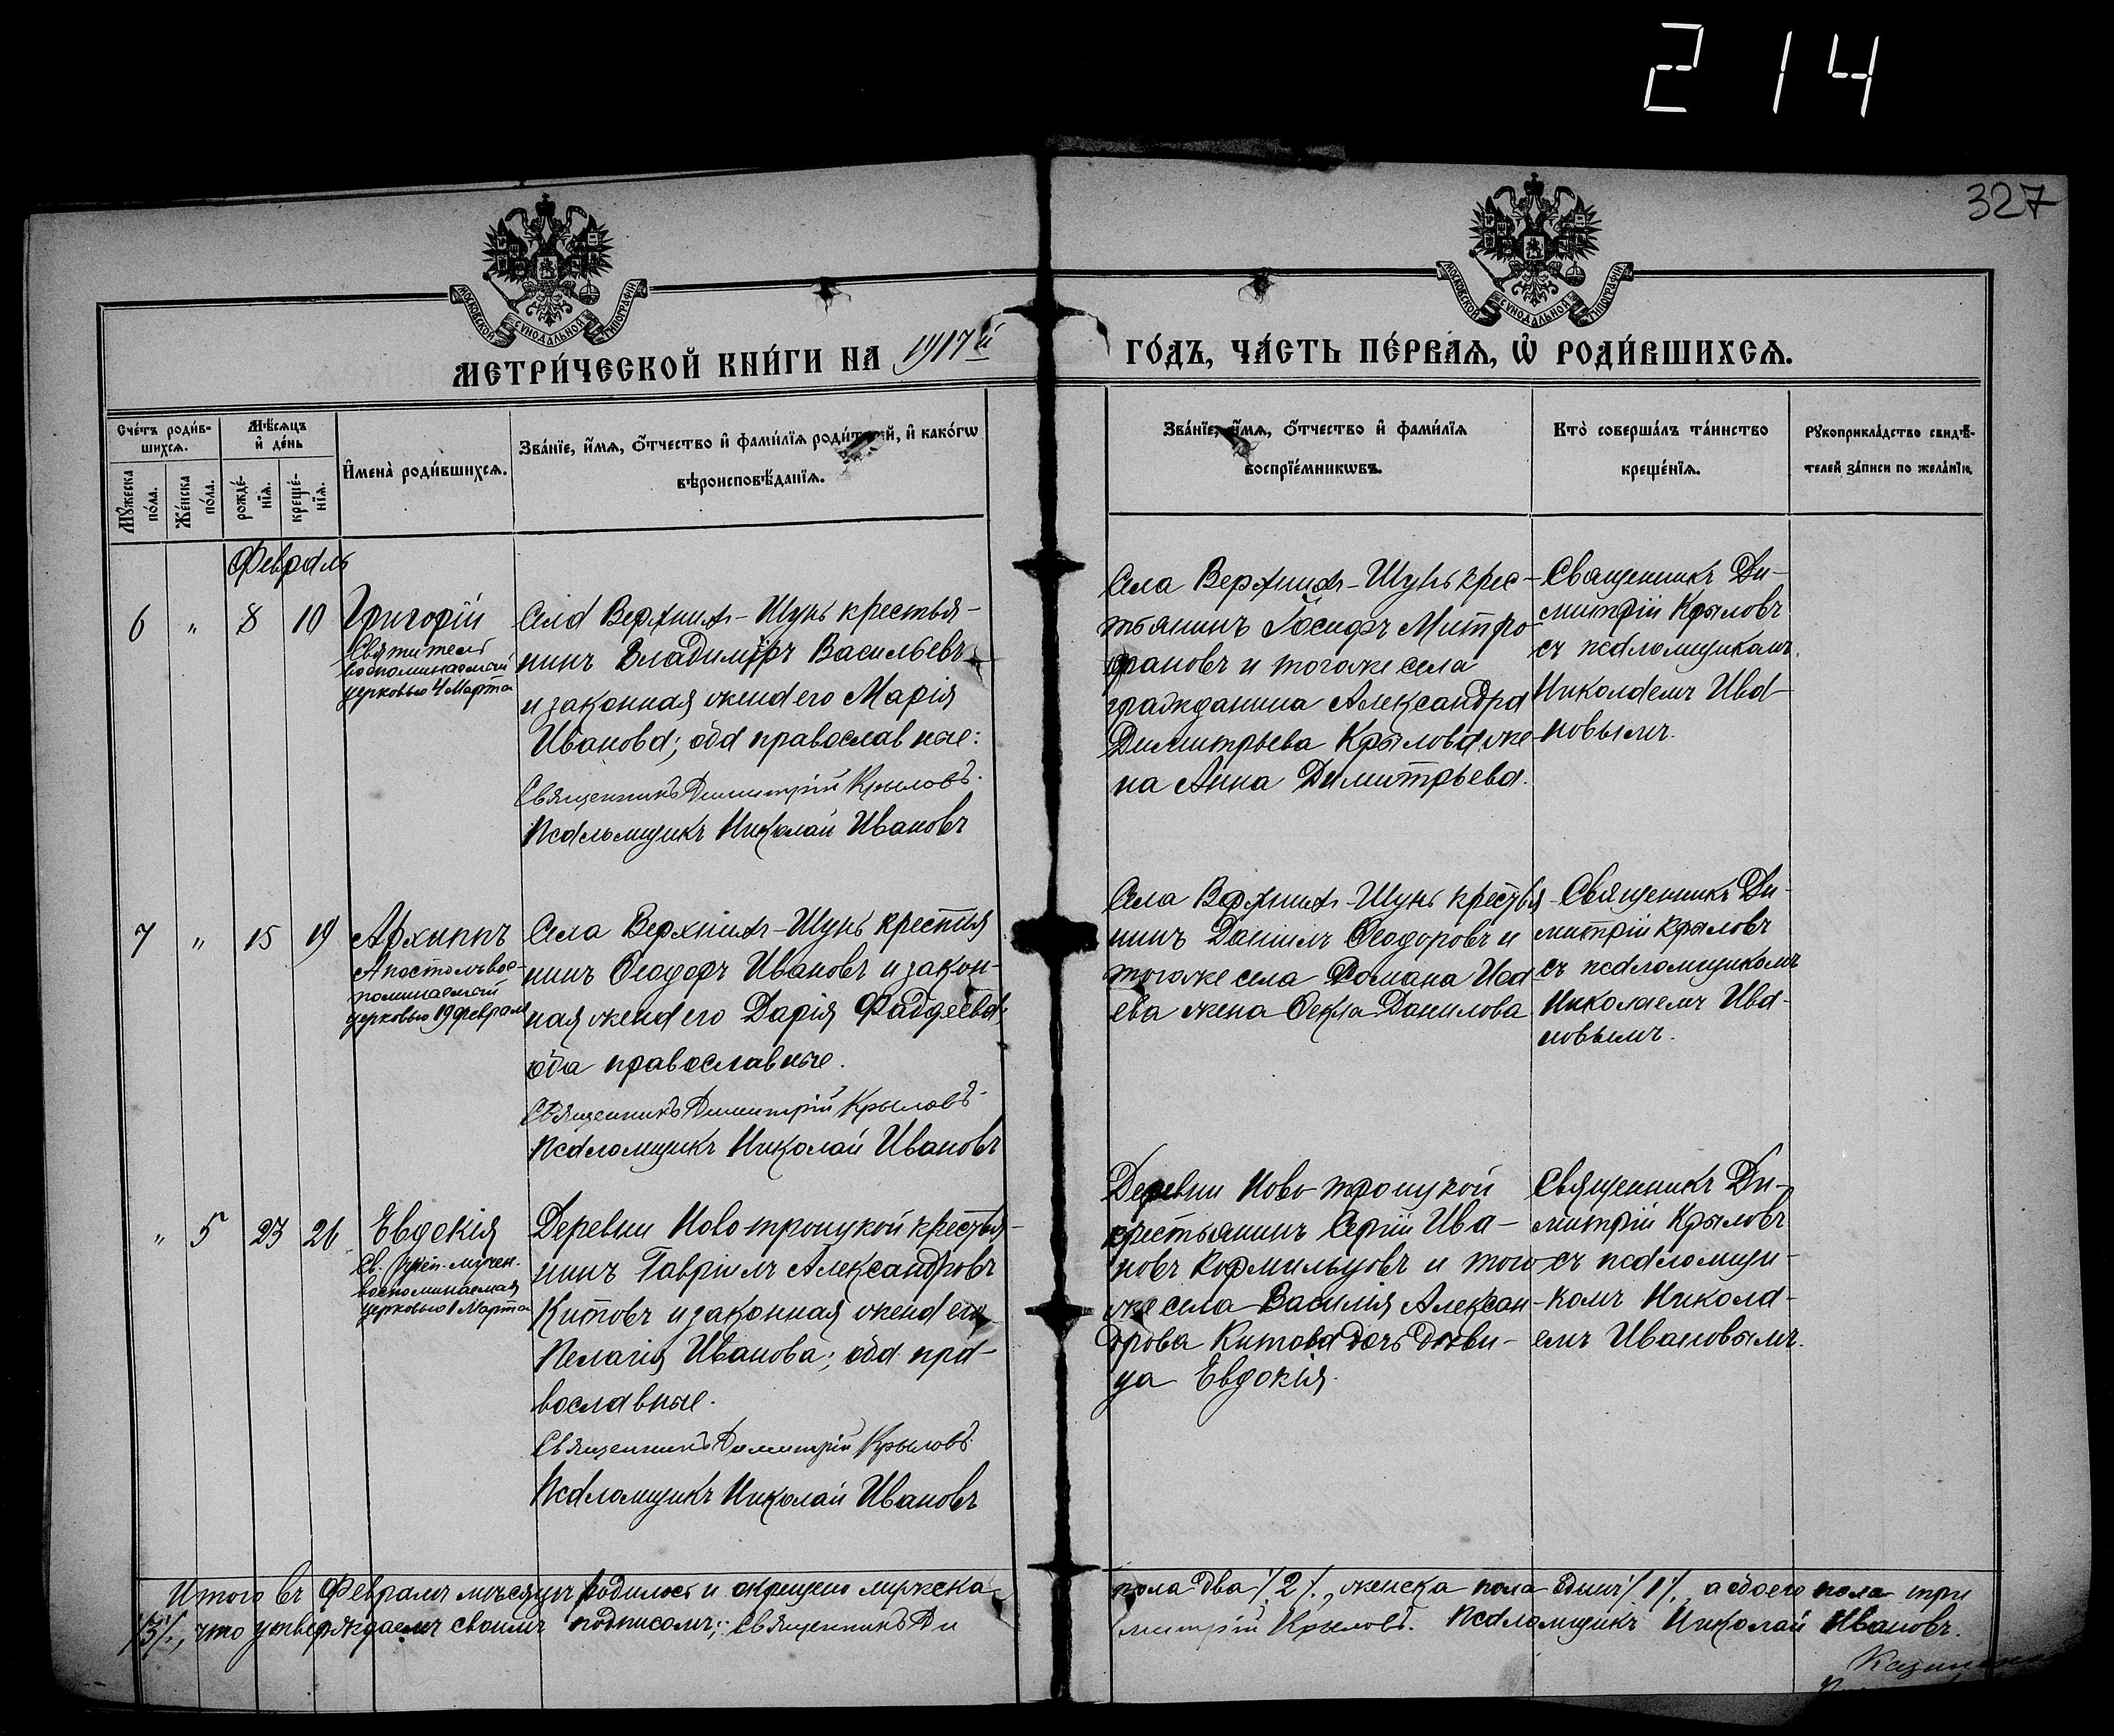 214
327
МОСКОВСКОЙ СѴНОДАЛЬНОЙ ТИПОГРАФІИ
МОСКОВСКОЙ СѴНОДАЛЬНОЙ ТИПОГРАФІИ
МЕТРИ́ЧЕСКОЙ КНИ́ГИ НА 1917й
ГО́ДЪ, ЧА́СТЬ ПЕ́РВАѦ, Ѿ РОДИ́ВШИХСѦ.
Сче́тъ роди́в-
шихсѧ.
Мѣ́сѧцъ
и҆ де́нь
Мꙋ́жеска
по́ла.
Же́нска
по́ла.
рожде́-
нїѧ.
креще́-
нїѧ.
И҆мена̀ роди́вшихсѧ.
Зва́нїе, и҆́мѧ, ѻ҆́тчество и҆ фами́лїѧ роди́телей, и҆ како́гѡ
вѣроисповѣ́данїѧ.
Зва́нїе, и҆́мѧ, ѻ҆́тчество и҆ фами́лїѧ
воспрїе́мникѡвъ.
Кто̀ соверша́лъ та́инство
креще́нїѧ.
Рꙋкоприкла́дство свидѣ́-
телей за́писи по жела́нїю.
Февраль
6 " 8 10
Григорій
Святитель
воспоминаемый
церковью 4 Марта
Села Верхнихъ-Шунь крестья-
нинъ Владиміръ Васильевъ
и законная жена его Марія
Иванова; оба православные:
Священникъ Димитрій Крыловъ.
Псаломщикъ Николай Ивановъ
Села Верхнихъ-Шунь крес-
тьянинъ Іосифъ Митро
фановъ и тогоже села
гражданина Александра
Димитрьева Крылова же-
на Анна Димитрьева.
Священникъ Ди-
митрій Крыловъ
съ псаломщикомъ
Николаемъ Ива-
новымъ.
7 " 15 19
Архиппъ
Апостолъ вос-
поминаемый
церковью 19 февраля
Села Верхнихъ-Шунь крестья
нинъ Ѳеодоръ Ивановъ и закон-
ная жена его Дарія Фаддеева;
оба православные.
Священникъ Димитрій Крыловъ.
Псаломщикъ Николай Ивановъ
Села Верхнихъ-Шунь крестья
нинъ Даніилъ Ѳеодоровъ и
тогоже села Романа Иса
ева жена Ѳекла Данилова
Священникъ Ди-
митрій Крыловъ
съ псаломщикомъ
Николаемъ Ива-
новымъ.
" 5 23 26
Евдокія
Св. преп. мучен.
воспоминаемая
церковью 1 Марта
Деревни Новотроицкой крестья-
нинъ Гавріилъ Александровъ
Китовъ и законная жена его
Пелагія Иванова; оба пра-
вославные.
Священникъ Димитрій Крыловъ.
Псаломщикъ Николай Ивановъ
Деревни Ново-троицкой
крестьянинъ Сергій Ива-
новъ Кормильцовъ и того
же села Василія Алексан-
дрова Китова дочь дѣви-
ца Евдокія.
Священникъ Ди-
митрій Крыловъ
съ псаломщи-
комъ Никола-
емъ Ивановымъ.
Итого въ Февралѣ мѣсяцѣ родилось и окрещено мужска
пола два /2/, женска пола одинъ /1/, а обоего пола три
/3/, что утверждаемъ своимъ подписомъ; Священникъ Ди
митрій Крыловъ. Псаломщикъ Николай Ивановъ.